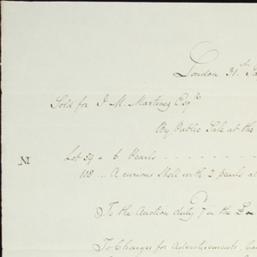 London 31st Ja
Sold for J. M. Martinez Esqre
By Public Sale at the
M
Lot 59 - 6 Pearls
118 ... A curious Shell with 2 pearls a
To the Auction duty 7 on the £
To Charges for Advertisements, Ca